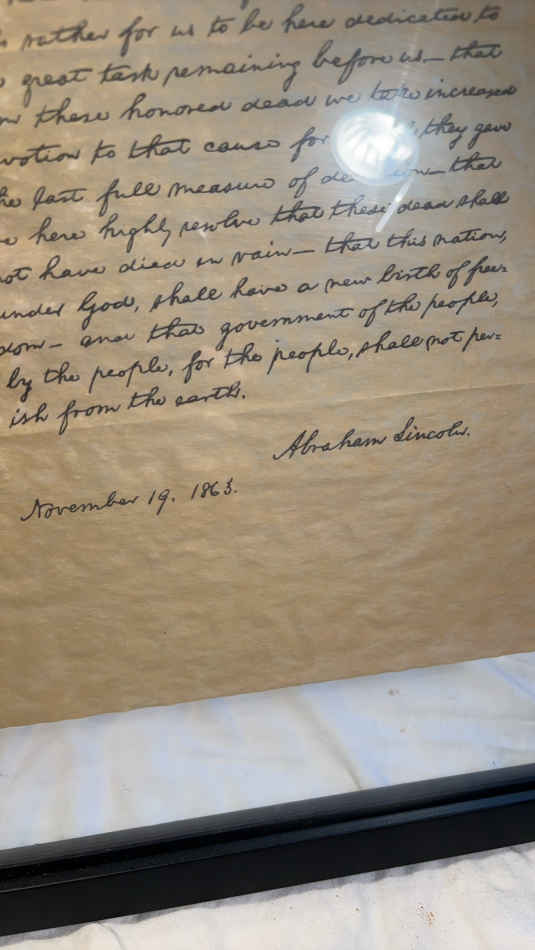 rather for us to be here dedicated to
great task remaining before us — that
these honored dead we take increased
votion to that cause for they gave
he last full measure of de — that
e here highly resolve that these dead shall
not have died in vain — that this nation,
under God, shall have a new birth of free=
dom — and that government of the people,
by the people, for the people, shall not per=
ish from the earth.
Abraham Lincoln.
November 19, 1863.